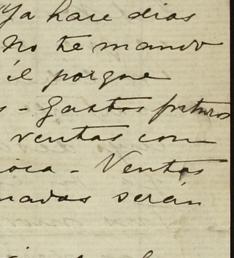 Ya hace dias
No te mando
él porque
s - Gastos futuros
ventas con
oca - Ventas
nadas serán